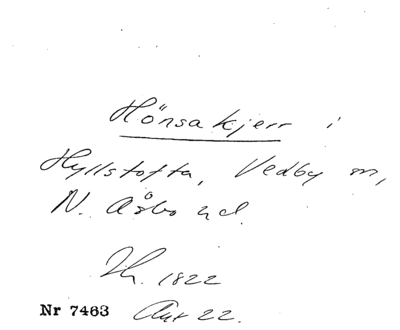 Hönsakjerr i
Hyllstofta, Vedby sn,
N. Åsbo hd.
Th. 1822
Nr 7463 Aut 22.